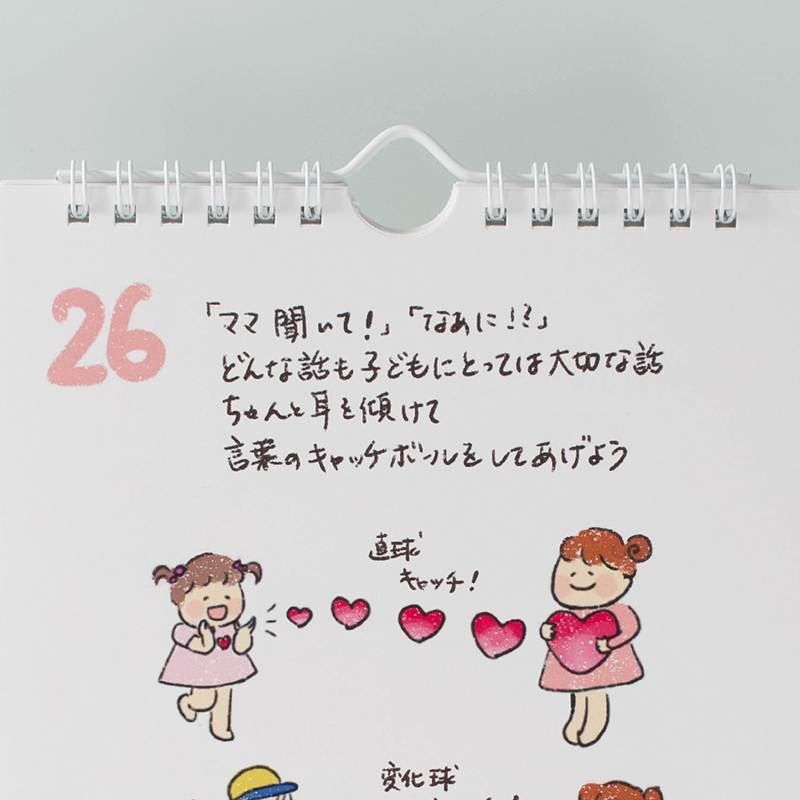 26
「ママ 聞いて!」「なあに!?」
どんな話も子どもにとっては大切な話
ちゃんと耳を傾けて
言葉のキャッチボールをしてあげよう
直球
キャッチ!
変化球